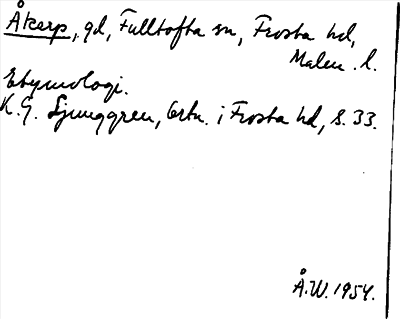 Åkarp, gd, Fulltofta sn, Frosta hd,
Malm. l.
Etymologi.
K.G. Ljunggren, Ortn. i Frosta hd, s. 33.
Å.W. 1954.